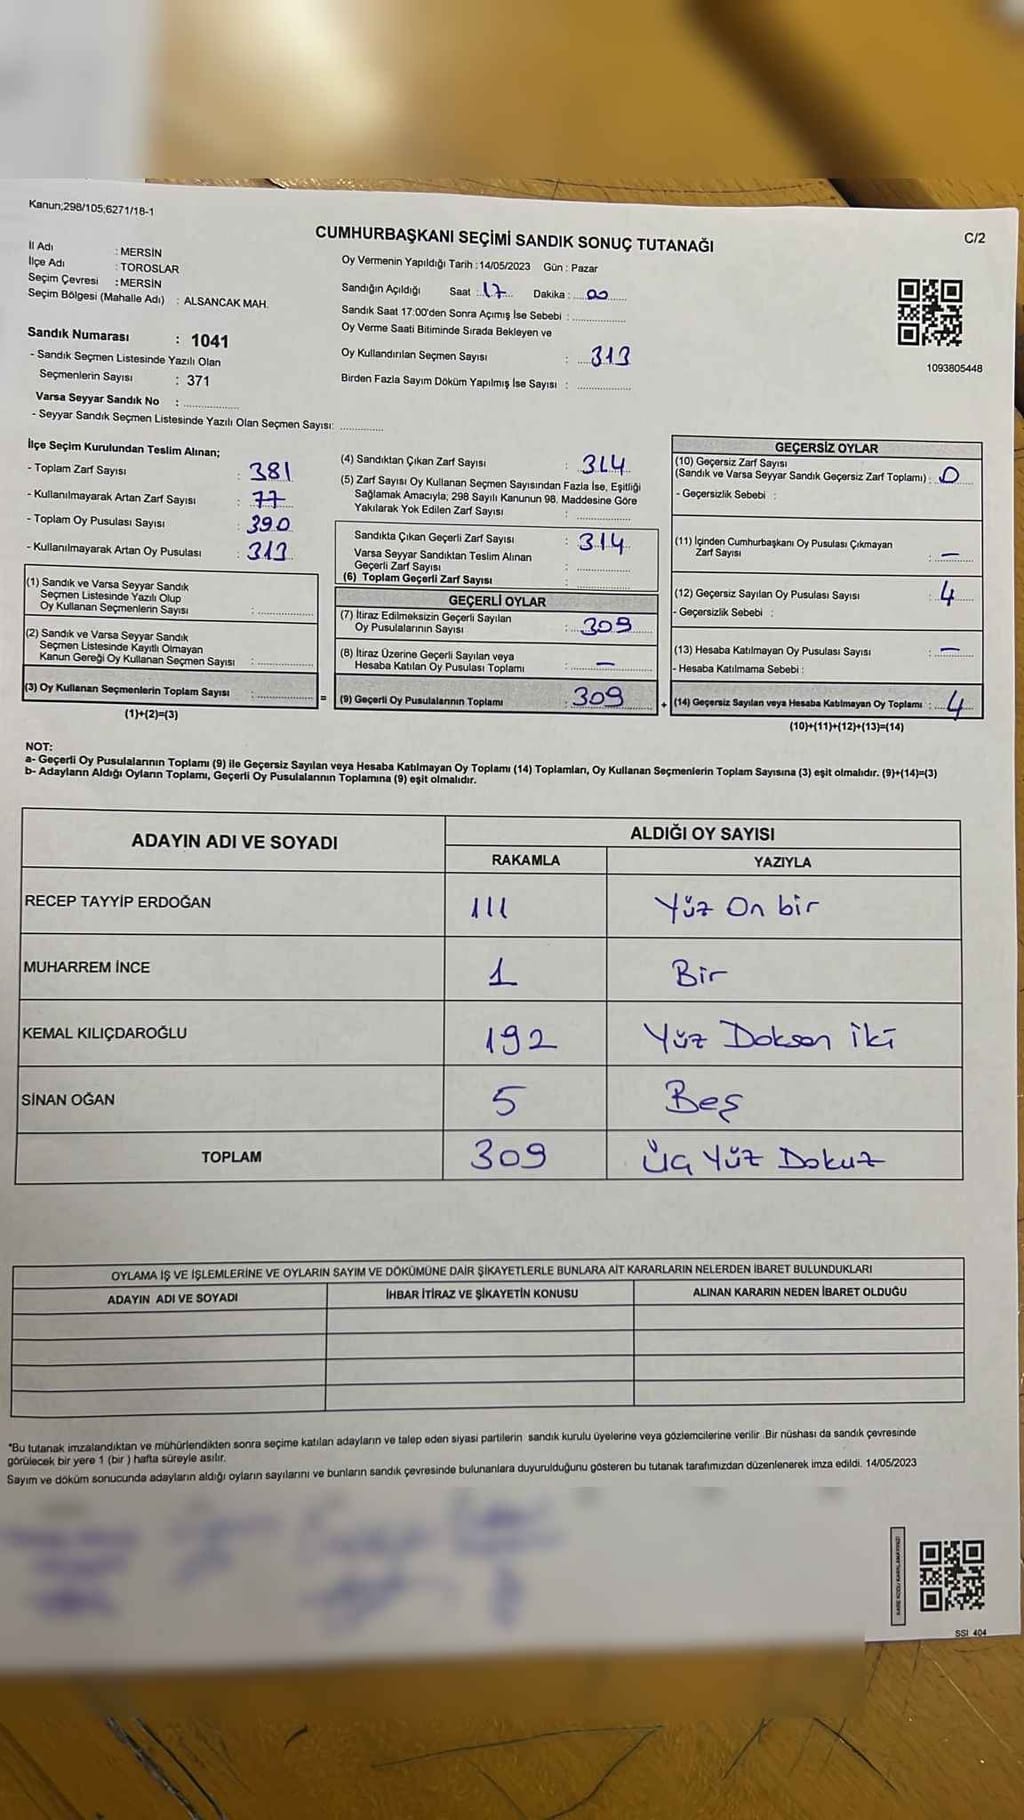 Kanun;298/105;6271/18-1
CUMHURBAŞKANI SEÇİMİ SANDIK SONUÇ TUTANAĞI
C/2
İl Adı : MERSİN
İlçe Adı : TOROSLAR
Seçim Çevresi : MERSİN
Seçim Bölgesi (Mahalle Adı) : ALSANCAK MAH.
Oy Vermenin Yapıldığı Tarih : 14/05/2023 Gün : Pazar
Sandığın Açıldığı Saat : 17 Dakika : 00
Sandık Saat 17:00'den Sonra Açımış İse Sebebi :
Oy Verme Saati Bitiminde Sırada Bekleyen ve
Oy Kullandırılan Seçmen Sayısı : 313
Birden Fazla Sayım Döküm Yapılmış İse Sayısı :
1093805448
Sandık Numarası : 1041
- Sandık Seçmen Listesinde Yazılı Olan
Seçmenlerin Sayısı : 371
Varsa Seyyar Sandık No :
- Seyyar Sandık Seçmen Listesinde Yazılı Olan Seçmen Sayısı:
İlçe Seçim Kurulundan Teslim Alınan;
- Toplam Zarf Sayısı : 381
- Kullanılmayarak Artan Zarf Sayısı : 77
- Toplam Oy Pusulası Sayısı : 390
- Kullanılmayarak Artan Oy Pusulası : 313
(1) Sandık ve Varsa Seyyar Sandık
Seçmen Listesinde Yazılı Olup
Oy Kullanan Seçmenlerin Sayısı :
(2) Sandık ve Varsa Seyyar Sandık
Seçmen Listesinde Kayıtlı Olmayan
Kanun Gereği Oy Kullanan Seçmen Sayısı :
(3) Oy Kullanan Seçmenlerin Toplam Sayısı :
(1)+(2)=(3)
(4) Sandıktan Çıkan Zarf Sayısı : 314
(5) Zarf Sayısı Oy Kullanan Seçmen Sayısından Fazla İse, Eşitliği
Sağlamak Amacıyla; 298 Sayılı Kanunun 98. Maddesine Göre
Yakılarak Yok Edilen Zarf Sayısı :
Sandıkta Çıkan Geçerli Zarf Sayısı : 314
Varsa Seyyar Sandıktan Teslim Alınan
Geçerli Zarf Sayısı :
(6) Toplam Geçerli Zarf Sayısı :
GEÇERLİ OYLAR
(7) İtiraz Edilmeksizin Geçerli Sayılan
Oy Pusulalarının Sayısı : 309
(8) İtiraz Üzerine Geçerli Sayılan veya
Hesaba Katılan Oy Pusulası Toplamı : —
= (9) Geçerli Oy Pusulalarının Toplamı : 309
GEÇERSİZ OYLAR
(10) Geçersiz Zarf Sayısı
(Sandık ve Varsa Seyyar Sandık Geçersiz Zarf Toplamı) : 0
- Geçersizlik Sebebi :
(11) İçinden Cumhurbaşkanı Oy Pusulası Çıkmayan
Zarf Sayısı : —
(12) Geçersiz Sayılan Oy Pusulası Sayısı : 4
- Geçersizlik Sebebi :
(13) Hesaba Katılmayan Oy Pusulası Sayısı : —
- Hesaba Katılmama Sebebi :
+ (14) Geçersiz Sayılan veya Hesaba Katılmayan Oy Toplamı : 4
(10)+(11)+(12)+(13)=(14)
NOT:
a- Geçerli Oy Pusulalarının Toplamı (9) ile Geçersiz Sayılan veya Hesaba Katılmayan Oy Toplamı (14) Toplamları, Oy Kullanan Seçmenlerin Toplam Sayısına (3) eşit olmalıdır. (9)+(14)=(3)
b- Adayların Aldığı Oyların Toplamı, Geçerli Oy Pusulalarının Toplamına (9) eşit olmalıdır.
ADAYIN ADI VE SOYADI
ALDIĞI OY SAYISI
RAKAMLA YAZIYLA
RECEP TAYYİP ERDOĞAN 111 Yüz On bir
MUHARREM İNCE 1 Bir
KEMAL KILIÇDAROĞLU 192 Yüz Doksan İki
SİNAN OĞAN 5 Beş
TOPLAM 309 Üç Yüz Dokuz
OYLAMA İŞ VE İŞLEMLERİNE VE OYLARIN SAYIM VE DÖKÜMÜNE DAİR ŞİKAYETLERLE BUNLARA AİT KARARLARIN NELERDEN İBARET BULUNDUKLARI
ADAYIN ADI VE SOYADI İHBAR İTİRAZ VE ŞİKAYETİN KONUSU ALINAN KARARIN NEDEN İBARET OLDUĞU
*Bu tutanak imzalandıktan ve mühürlendikten sonra seçime katılan adayların ve talep eden siyasi partilerin sandık kurulu üyelerine veya gözlemcilerine verilir .Bir nüshası da sandık çevresinde
görülecek bir yere 1 (bir ) hafta süreyle asılır.
Sayım ve döküm sonucunda adayların aldığı oyların sayılarını ve bunların sandık çevresinde bulunanlara duyurulduğunu gösteren bu tutanak tarafımızdan düzenlenerek imza edildi. 14/05/2023
SSI_404